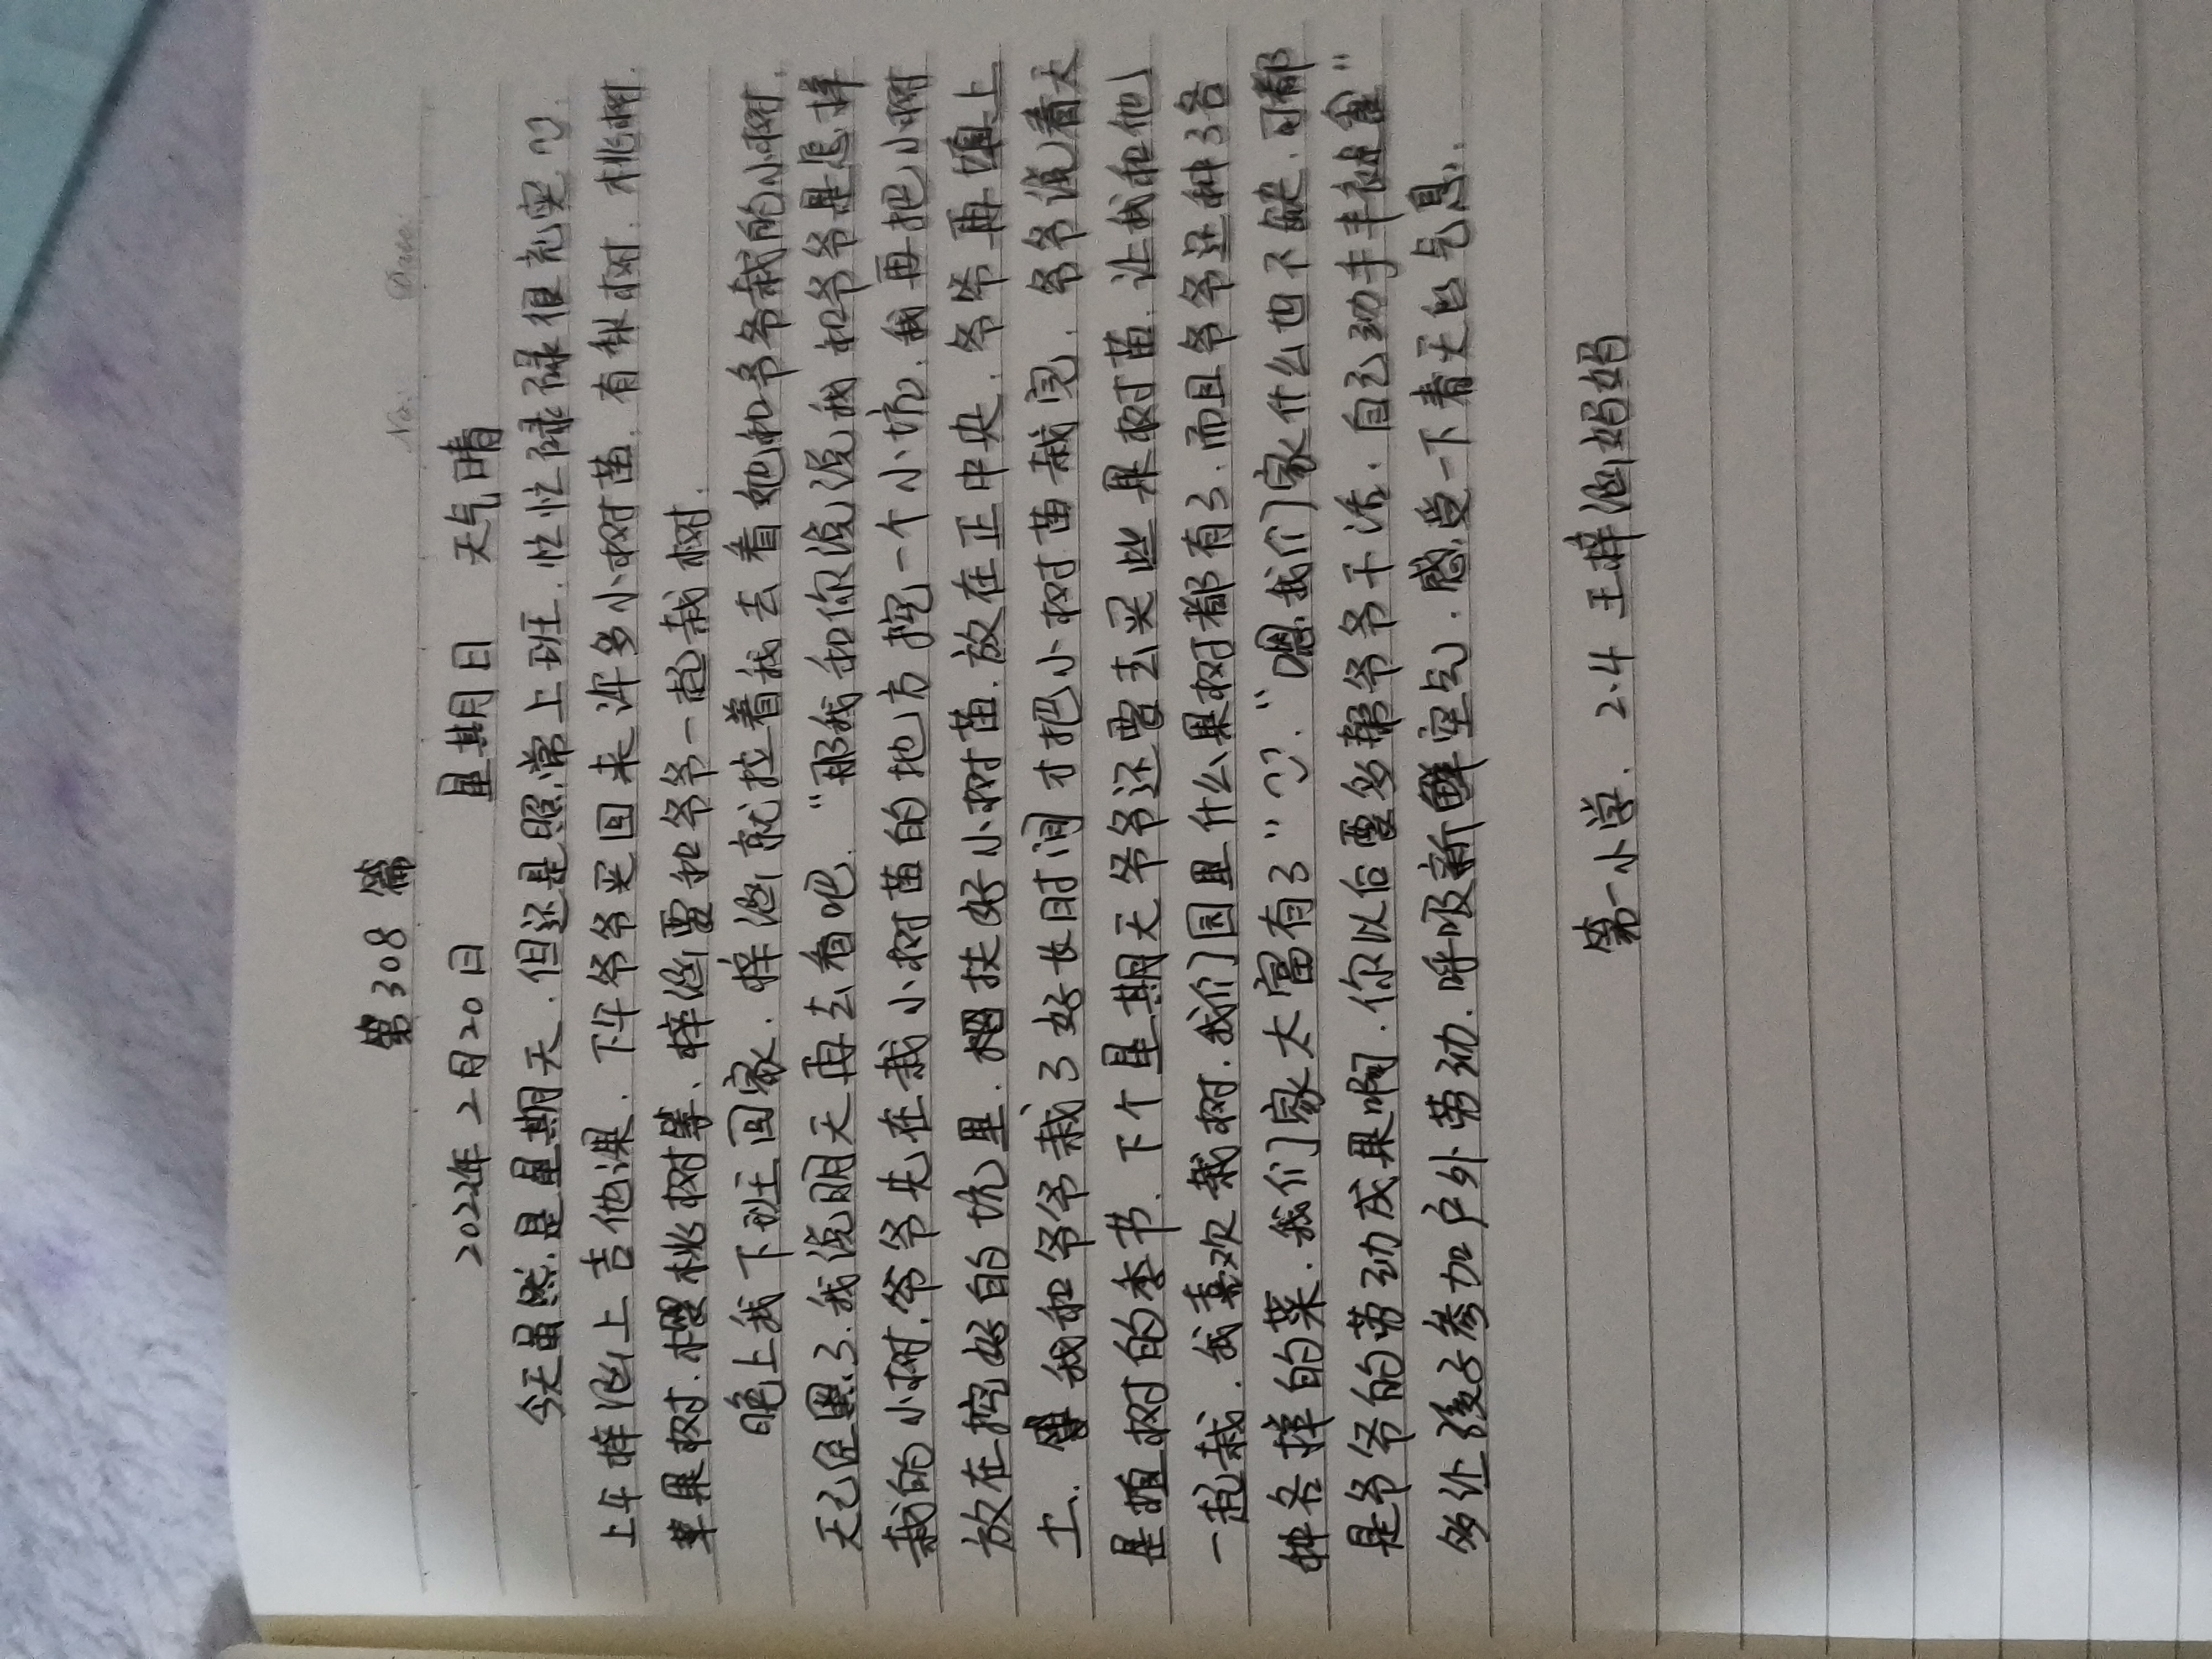 No.     Date
第308篇
2022年2月20日    星期日    天气晴
今天虽然是星期天.但还是照常上班.忙忙碌碌很充实~
上午梓涵上吉他课.下午爷爷买回来许多小树苗.有梨树.桃树.
苹果树.樱桃树等.梓涵要和爷爷一起栽树.
晚上我下班回家.梓涵就拉着我去看她和爷爷栽的小树.
天已经黑了.我说明天再去看吧."那我和你说说我和爷爷是怎样
栽的小树.爷爷先在栽小树苗的地方挖一个小坑.我再把小树
放在挖好的坑里.扶好小树苗.放在正中央.爷爷再填上
土.我和爷爷栽了好长时间才把小树苗栽完.爷爷说春天
是植树的季节.下个星期天爷爷还要去买些果树苗.让我和他
一起栽.我喜欢栽树.我们园里什么果树都有了.而且爷爷还种了各
种各样的菜.我们家太富有了"~."嗯.我们家什么也不缺.可都
是爷爷的劳动成果啊.你以后要多帮爷爷干活.自己动手丰衣足食"
多让孩子参加户外劳动.呼吸新鲜空气.感受一下春天的气息.
第一小学.2.4 王梓涵妈妈